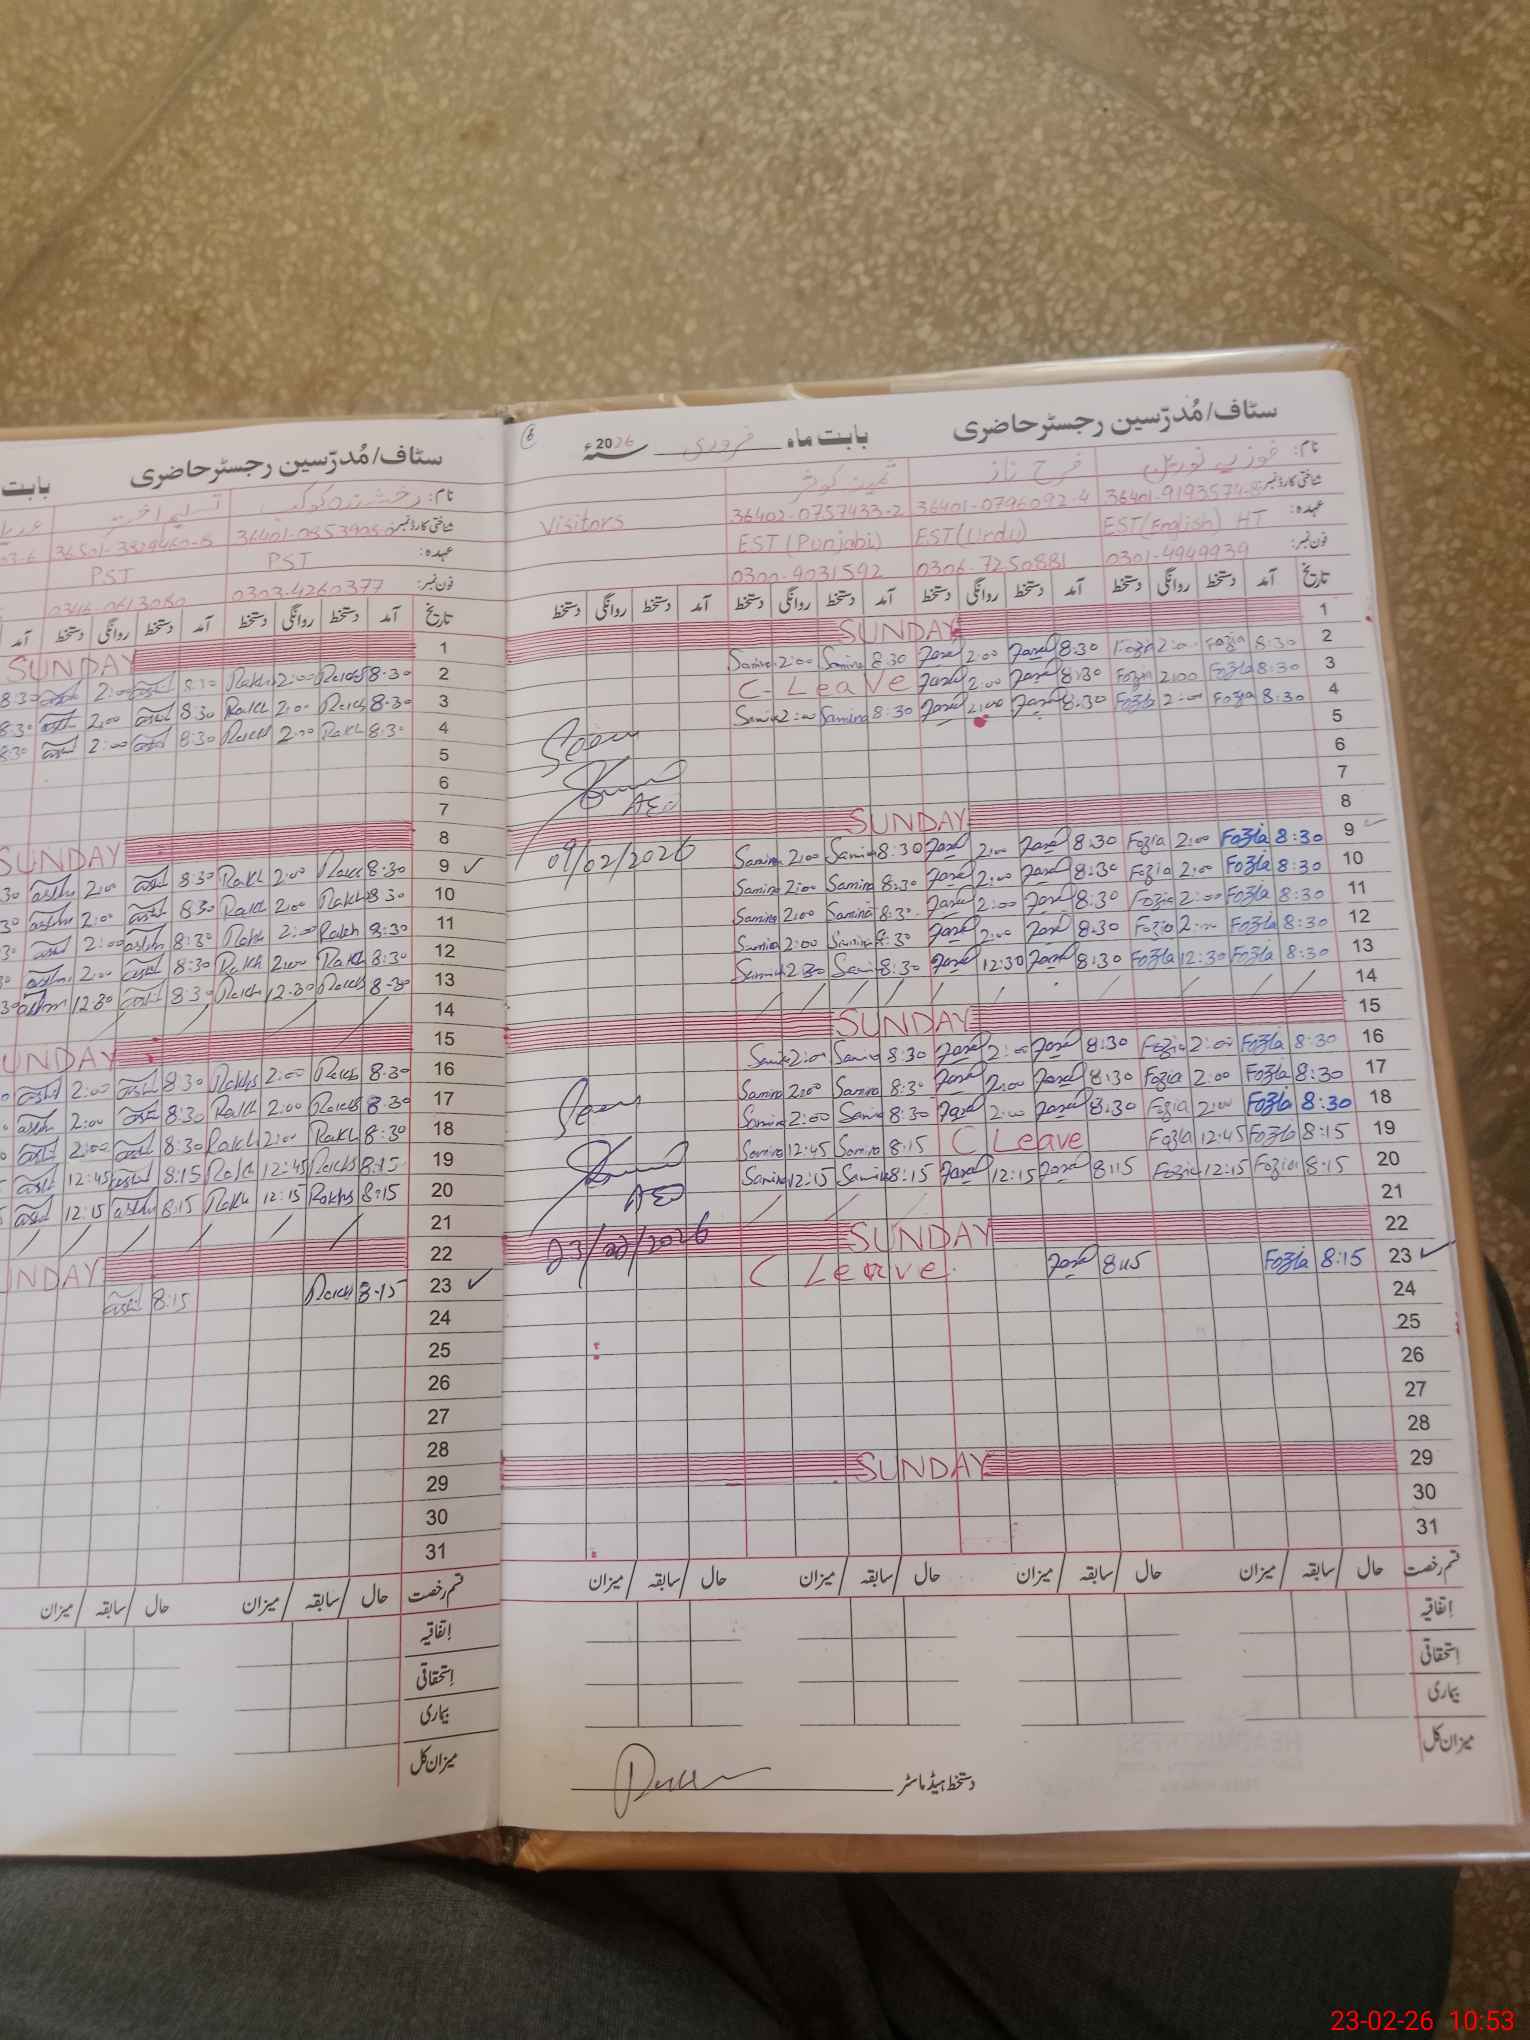 سٹاف/مُدرّسین رجسٹر حاضری
بابت
نام: رخشندہ کوکب
تسلیم اختر
شناختی کارڈ نمبر:
عہدہ: PST
PST
فون نمبر: 0303-4260377
0346-0613080
تاریخ آمد دستخط روانگی دستخط آمد دستخط روانگی دستخط آمد
1 SUNDAY
2 8:30 2:00 Rakh 8:30 2:00
3 8:30 2:00 Rakh 8:30 2:00
4 8:30 Rakh 2:00 8:30 2:00
5
6
7
8 SUNDAY
9 ✓ 8:30 2:00 Rakh 8:30 2:00
10 8:30 Rakh 2:00 Rakh 8:30 2:00
11 8:30 Rakh 2:00 Rakh 8:30 2:00
12 8:30 Rakh 2:00 Rakh 8:30 2:00
13 8:30 12:30 8:30 12:30
14
15 SUNDAY
16 8:30 2:00 Rakhs 8:30 2:00
17 8:30 2:00 Rakh 8:30 2:00
18 8:30 Rakh 2:00 Rakh 8:30 2:00
19 8:15 12:45 Rakh 8:15 12:45
20 8:15 Rakhs 12:15 Rakh 8:15 12:15
21
22 SUNDAY
23 ✓ 8:15 8:15
24
25
26
27
28
29
30
31
قسم رخصت حال / سابقہ / میزان حال / سابقہ / میزان
اتفاقیہ
استحقاقی
بیماری
میزان کل
6
سٹاف/مُدرّسین رجسٹر حاضری
بابت ماہ فروری سنۂ 2026
نام:
فرح ناز
ثمینہ کوثر
شناختی کارڈ نمبر:
36401-0796092-4
36402-0757433-2
Visitors
عہدہ: EST(English) HT
EST(Urdu)
EST(Punjabi)
فون نمبر: 0301-4949939
0306-7250881
0300-9031592
تاریخ آمد دستخط روانگی دستخط آمد دستخط روانگی دستخط آمد دستخط روانگی دستخط آمد دستخط روانگی دستخط
1 SUNDAY
2 8:30 Fozia 2:00 Fozia 8:30 2:00 8:30 Samina 2:00 Samina
3 8:30 Fozia 2:00 Fozia 8:30 2:00 C-Leave
4 8:30 Fozia 2:00 Fozia 8:30 2:00 8:30 Samina 2:00 Samina
5
6
7
8 SUNDAY
Seen
AEO
09/02/2026
9 8:30 Fozia 2:00 Fozia 8:30 2:00 8:30 Samina 2:00 Samina
10 8:30 Fozia 2:00 Fozia 8:30 2:00 8:30 Samina 2:00 Samina
11 8:30 Fozia 2:00 Fozia 8:30 2:00 8:30 Samina 2:00 Samina
12 8:30 Fozia 2:00 Fozia 8:30 2:00 8:30 Samina 2:00 Samina
13 8:30 Fozia 12:30 Fozia 8:30 12:30 8:30 Samina
14
15 SUNDAY
16 8:30 Fozia 2:00 Fozia 8:30 2:00 8:30 Samina 2:00 Samina
17 8:30 Fozia 2:00 Fozia 8:30 2:00 8:30 Samina 2:00 Samina
18 8:30 Fozia 2:00 Fozia 8:30 2:00 8:30 Samina 2:00 Samina
19 8:15 Fozia 12:45 Fozia C Leave 8:15 Samina 12:45 Samina
20 8:15 Fozia 12:15 Fozia 8:15 12:15 8:15 Samina 12:15 Samina
21
22 SUNDAY
Seen
AEO
23/02/2026
23 ✓ 8:15 Fozia C Leave
24
25
26
27
28
29 SUNDAY
30
31
قسم رخصت حال / سابقہ / میزان حال / سابقہ / میزان حال / سابقہ / میزان حال / سابقہ / میزان
اتفاقیہ
استحقاقی
بیماری
میزان کل
دستخط ہیڈ ماسٹر
23-02-26 10:53